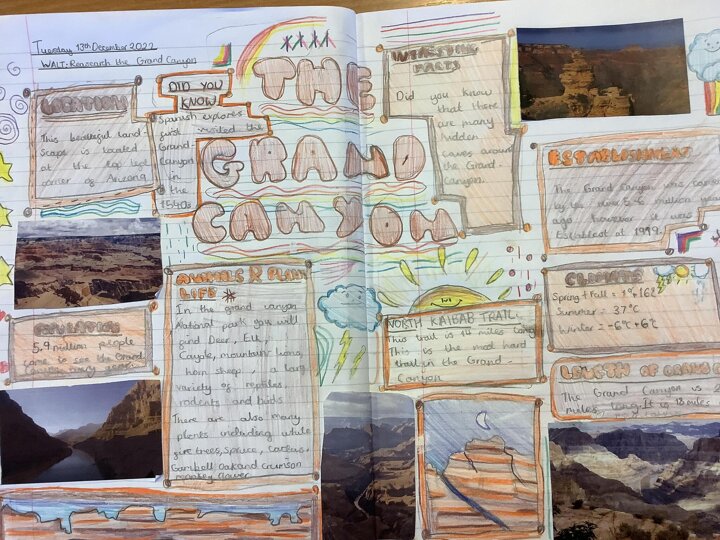 Tuesday 13th December 2022
WALT: Reasearch the Grand Canyon
LOCATION
This beatieful land
Scape is located
at the top left
corner of Arizona
DID YOU
KNOW
Spanish explores
first visited the
Grand-
Canyon
in
the
1540s
THE
GRAND
CANYON
INTRESTING
FACTS
Did you know
that there
are many
hidden
caves around
the Grand-
Canyon.
ESTABLISHMENT
The Grand Canyon was
by the river 5-6 million years
ago, however it was
Establisht at 1999.
5.9 million people
come to see the Grand
Canyon every year.
ANIMALS & PLANT
LIFE
In the grand canyon
National park you will
find Deer, Elk,
mountain lions,
horn sheep, a large
variety of reptiles,
rodents and birds
There are also many
plants including white
fire trees, spruce, cactus,
Gambell oak and crimson
monkey flower
NORTH KAIBAB TRAIL
This trail is 14 miles long
This is the most hard
trail in the Grand-
Canyon
CLIMATE
Spring + Fall =
Summer = 37°C
Winter = -6°C+6°C
LENGTH OF GRAND
The Grand Canyon is
miles, long. It is 18 miles